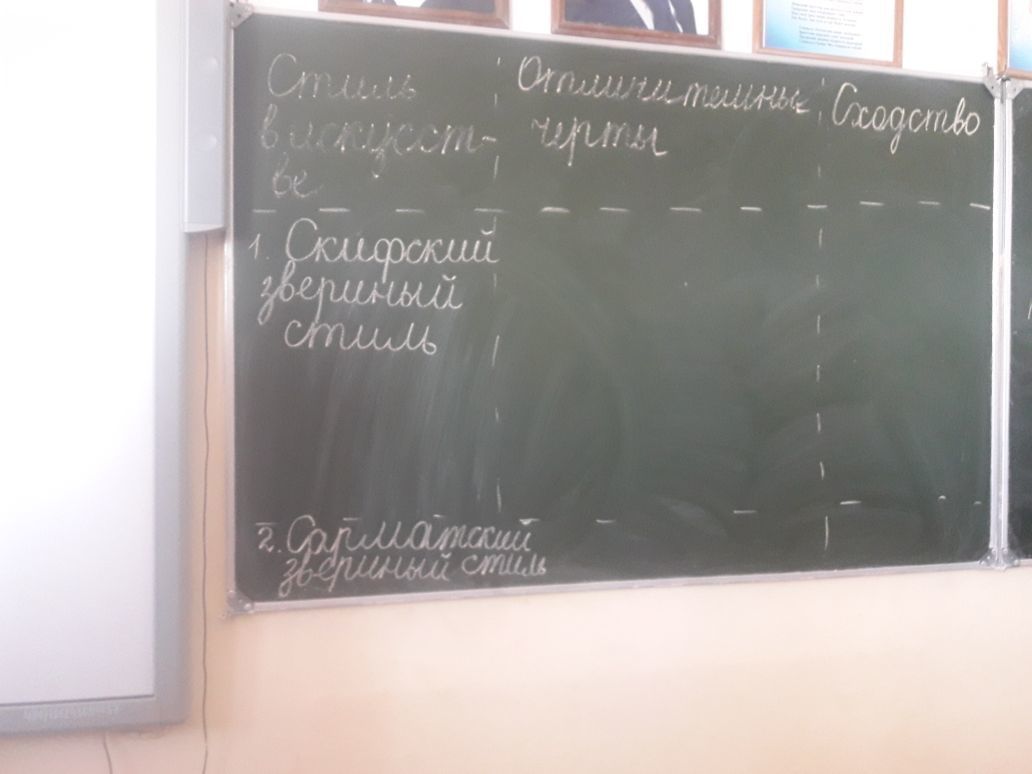 Стиль
в искусст-
ве
Отличительные
черты
Сходство
1. Скифский
звериный
стиль
2. Сарматский
звериный стиль